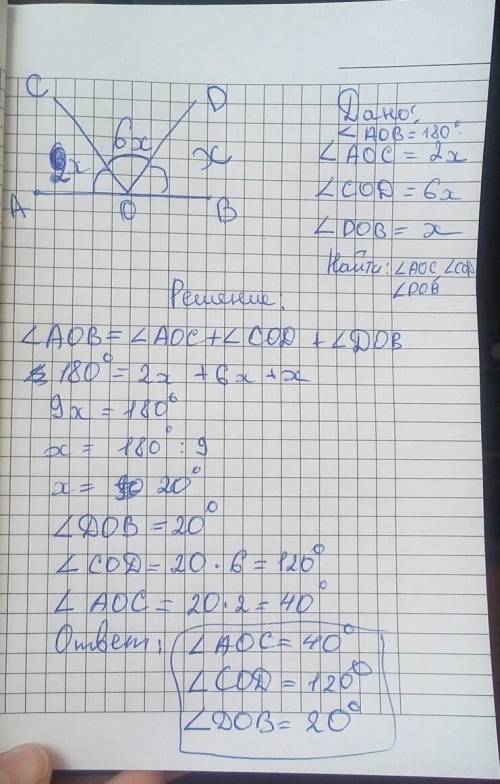 C
D
6x
2x
x
A
O
B
Дано:
∠AOB = 180°
∠AOC = 2x
∠COD = 6x
∠DOB = x
Найти: ∠AOC ∠COD
∠DOB
Решение:
∠AOB = ∠AOC + ∠COD + ∠DOB
180° = 2x + 6x + x
9x = 180°
x = 180° : 9
x = 20°
∠DOB = 20°
∠COD = 20 · 6 = 120°
∠AOC = 20 · 2 = 40°
Ответ: ∠AOC = 40°
∠COD = 120°
∠DOB = 20°